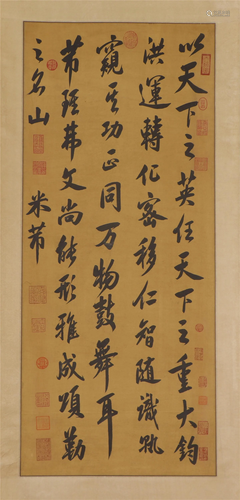 以天下之英任天下之重大鈞
洪運轉化密移仁智隨識孰
窺其功正同万物鼓舞耳
芾雖棄文尚能形雅成頌勒
之名山
米芾